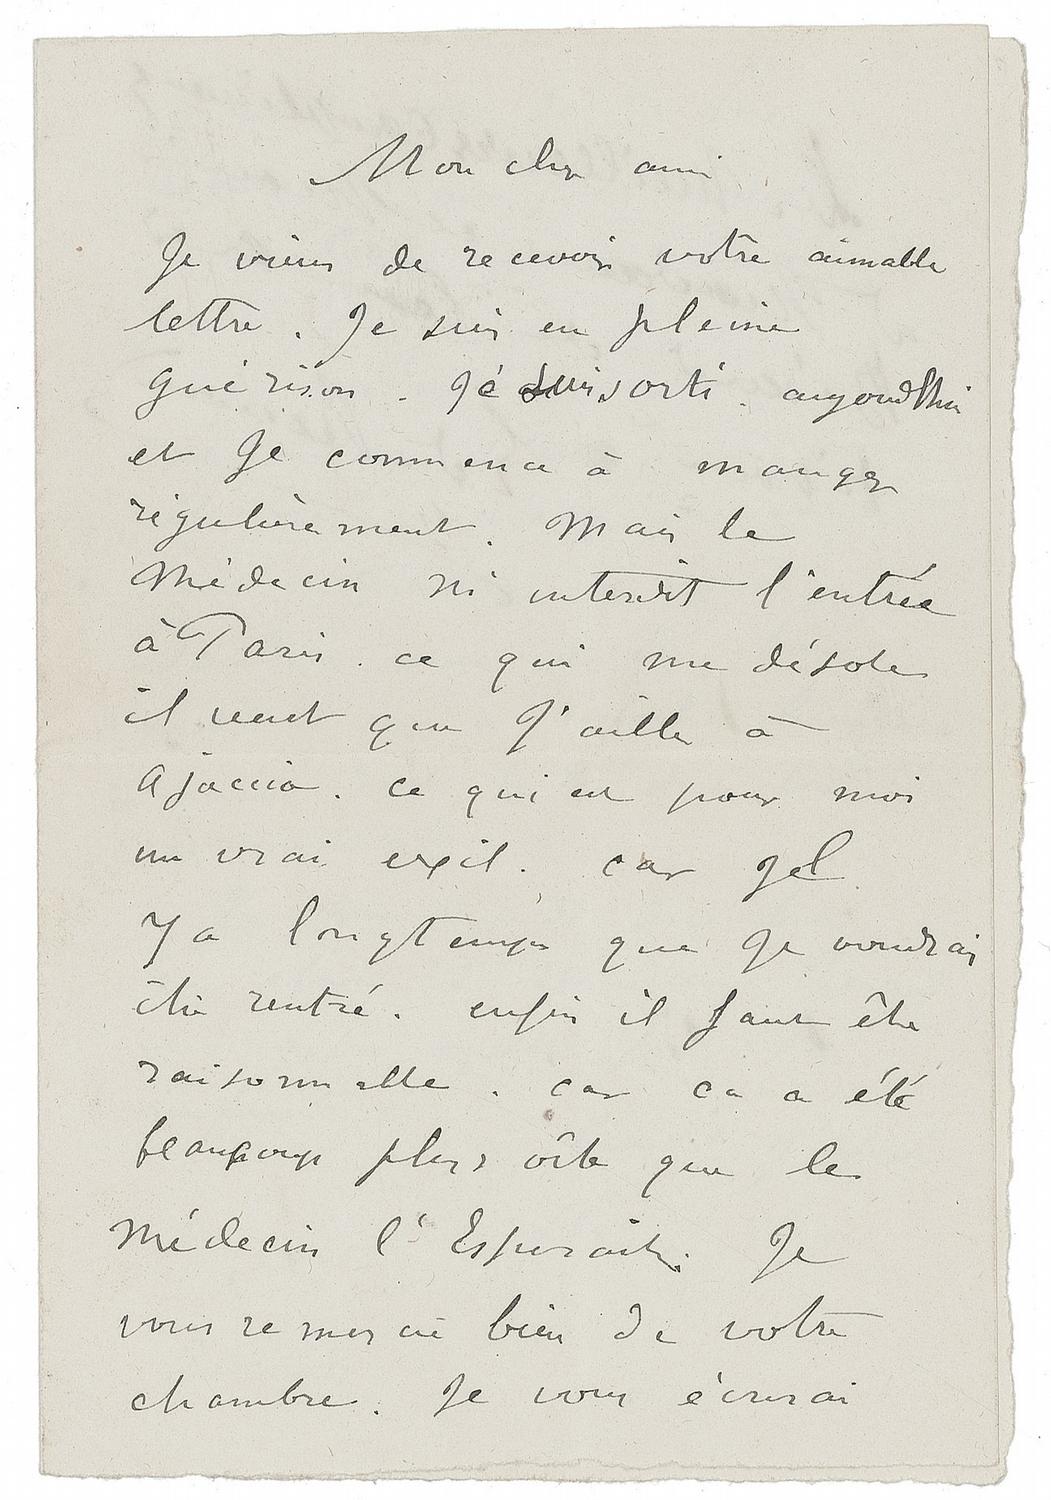 Mon cher ami
Je viens de recevoir votre aimable
lettre. Je suis en pleine
guérison. Je suis sorti. aujourd'hui
et Je commence à manger
régulièrement. Mais le
Médecin m'interdit l'entrée
à Paris. ce qui me désole
il veut que J'aille à
Ajaccio. ce qui est pour moi
un vrai exil. car Jel
Y a longtemps que Je voudrai
être rentré. enfin il faut être
raisonnable. car ca a été
beaucoup plus vîte que le
Médecin l'Espérait. Je
vous remercie bien de votre
chambre. Je vous écrirai